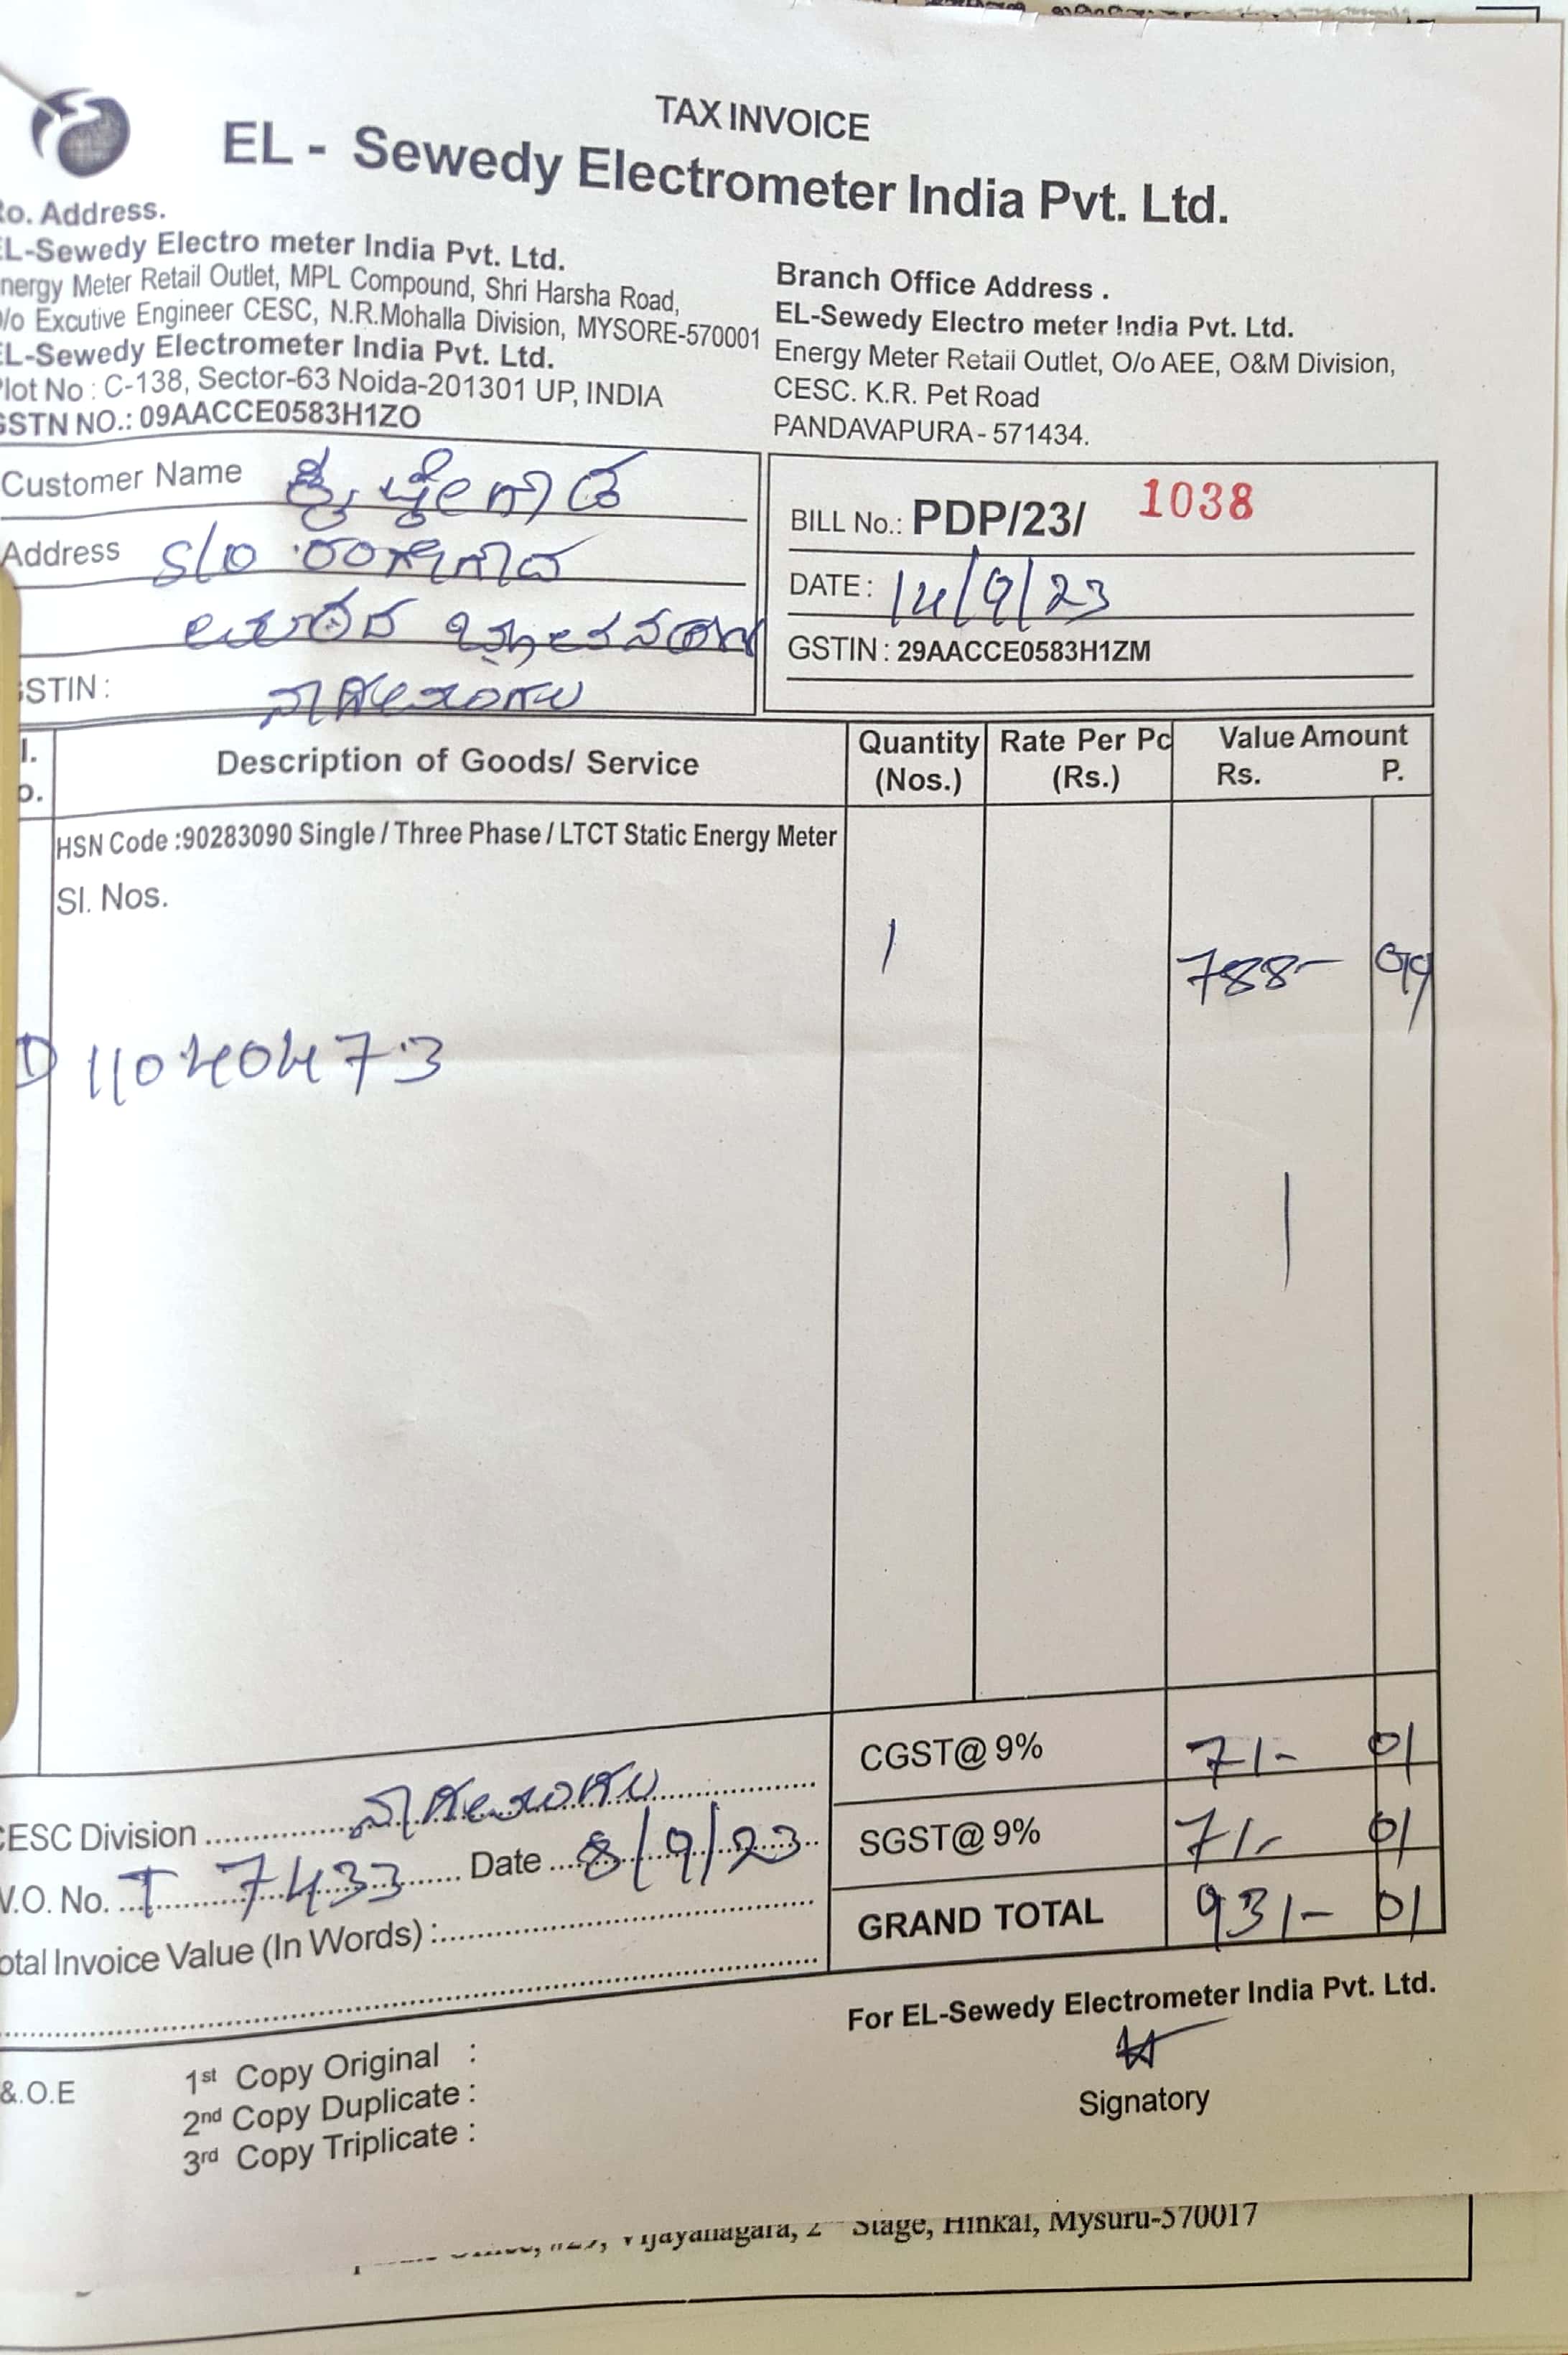 TAX INVOICE
EL - Sewedy Electrometer India Pvt. Ltd.
o. Address.
EL-Sewedy Electro meter India Pvt. Ltd.
nergy Meter Retail Outlet, MPL Compound, Shri Harsha Road,
/o Excutive Engineer CESC, N.R.Mohalla Division, MYSORE-570001
EL-Sewedy Electrometer India Pvt. Ltd.
Plot No : C-138, Sector-63 Noida-201301 UP, INDIA
GSTN NO.: 09AACCE0583H1ZO
Branch Office Address .
EL-Sewedy Electro meter India Pvt. Ltd.
Energy Meter Retail Outlet, O/o AEE, O&M Division,
CESC. K.R. Pet Road
PANDAVAPURA - 571434.
Customer Name ಶ್ರೀ
Address S/O
GSTIN : ನಾಗಮಂಗಲ
BILL No.: PDP/23/ 1038
DATE : 14/9/23
GSTIN : 29AACCE0583H1ZM
l. Description of Goods/ Service Quantity Rate Per Pc Value Amount
o. (Nos.) (Rs.) Rs. P.
HSN Code :90283090 Single / Three Phase / LTCT Static Energy Meter
Sl. Nos.
1 788- 99
1) 11040473
CGST@ 9% 71- 01
CESC Division ನಾಗಮಂಗಲ
SGST@ 9% 71- 01
W.O. No. T 7433 Date 8/9/23
GRAND TOTAL 931- 01
otal Invoice Value (In Words) :
For EL-Sewedy Electrometer India Pvt. Ltd.
Signatory
&.O.E
1st Copy Original :
2nd Copy Duplicate :
3rd Copy Triplicate :
Vijayanagara, 2 Stage, Hinkal, Mysuru-570017